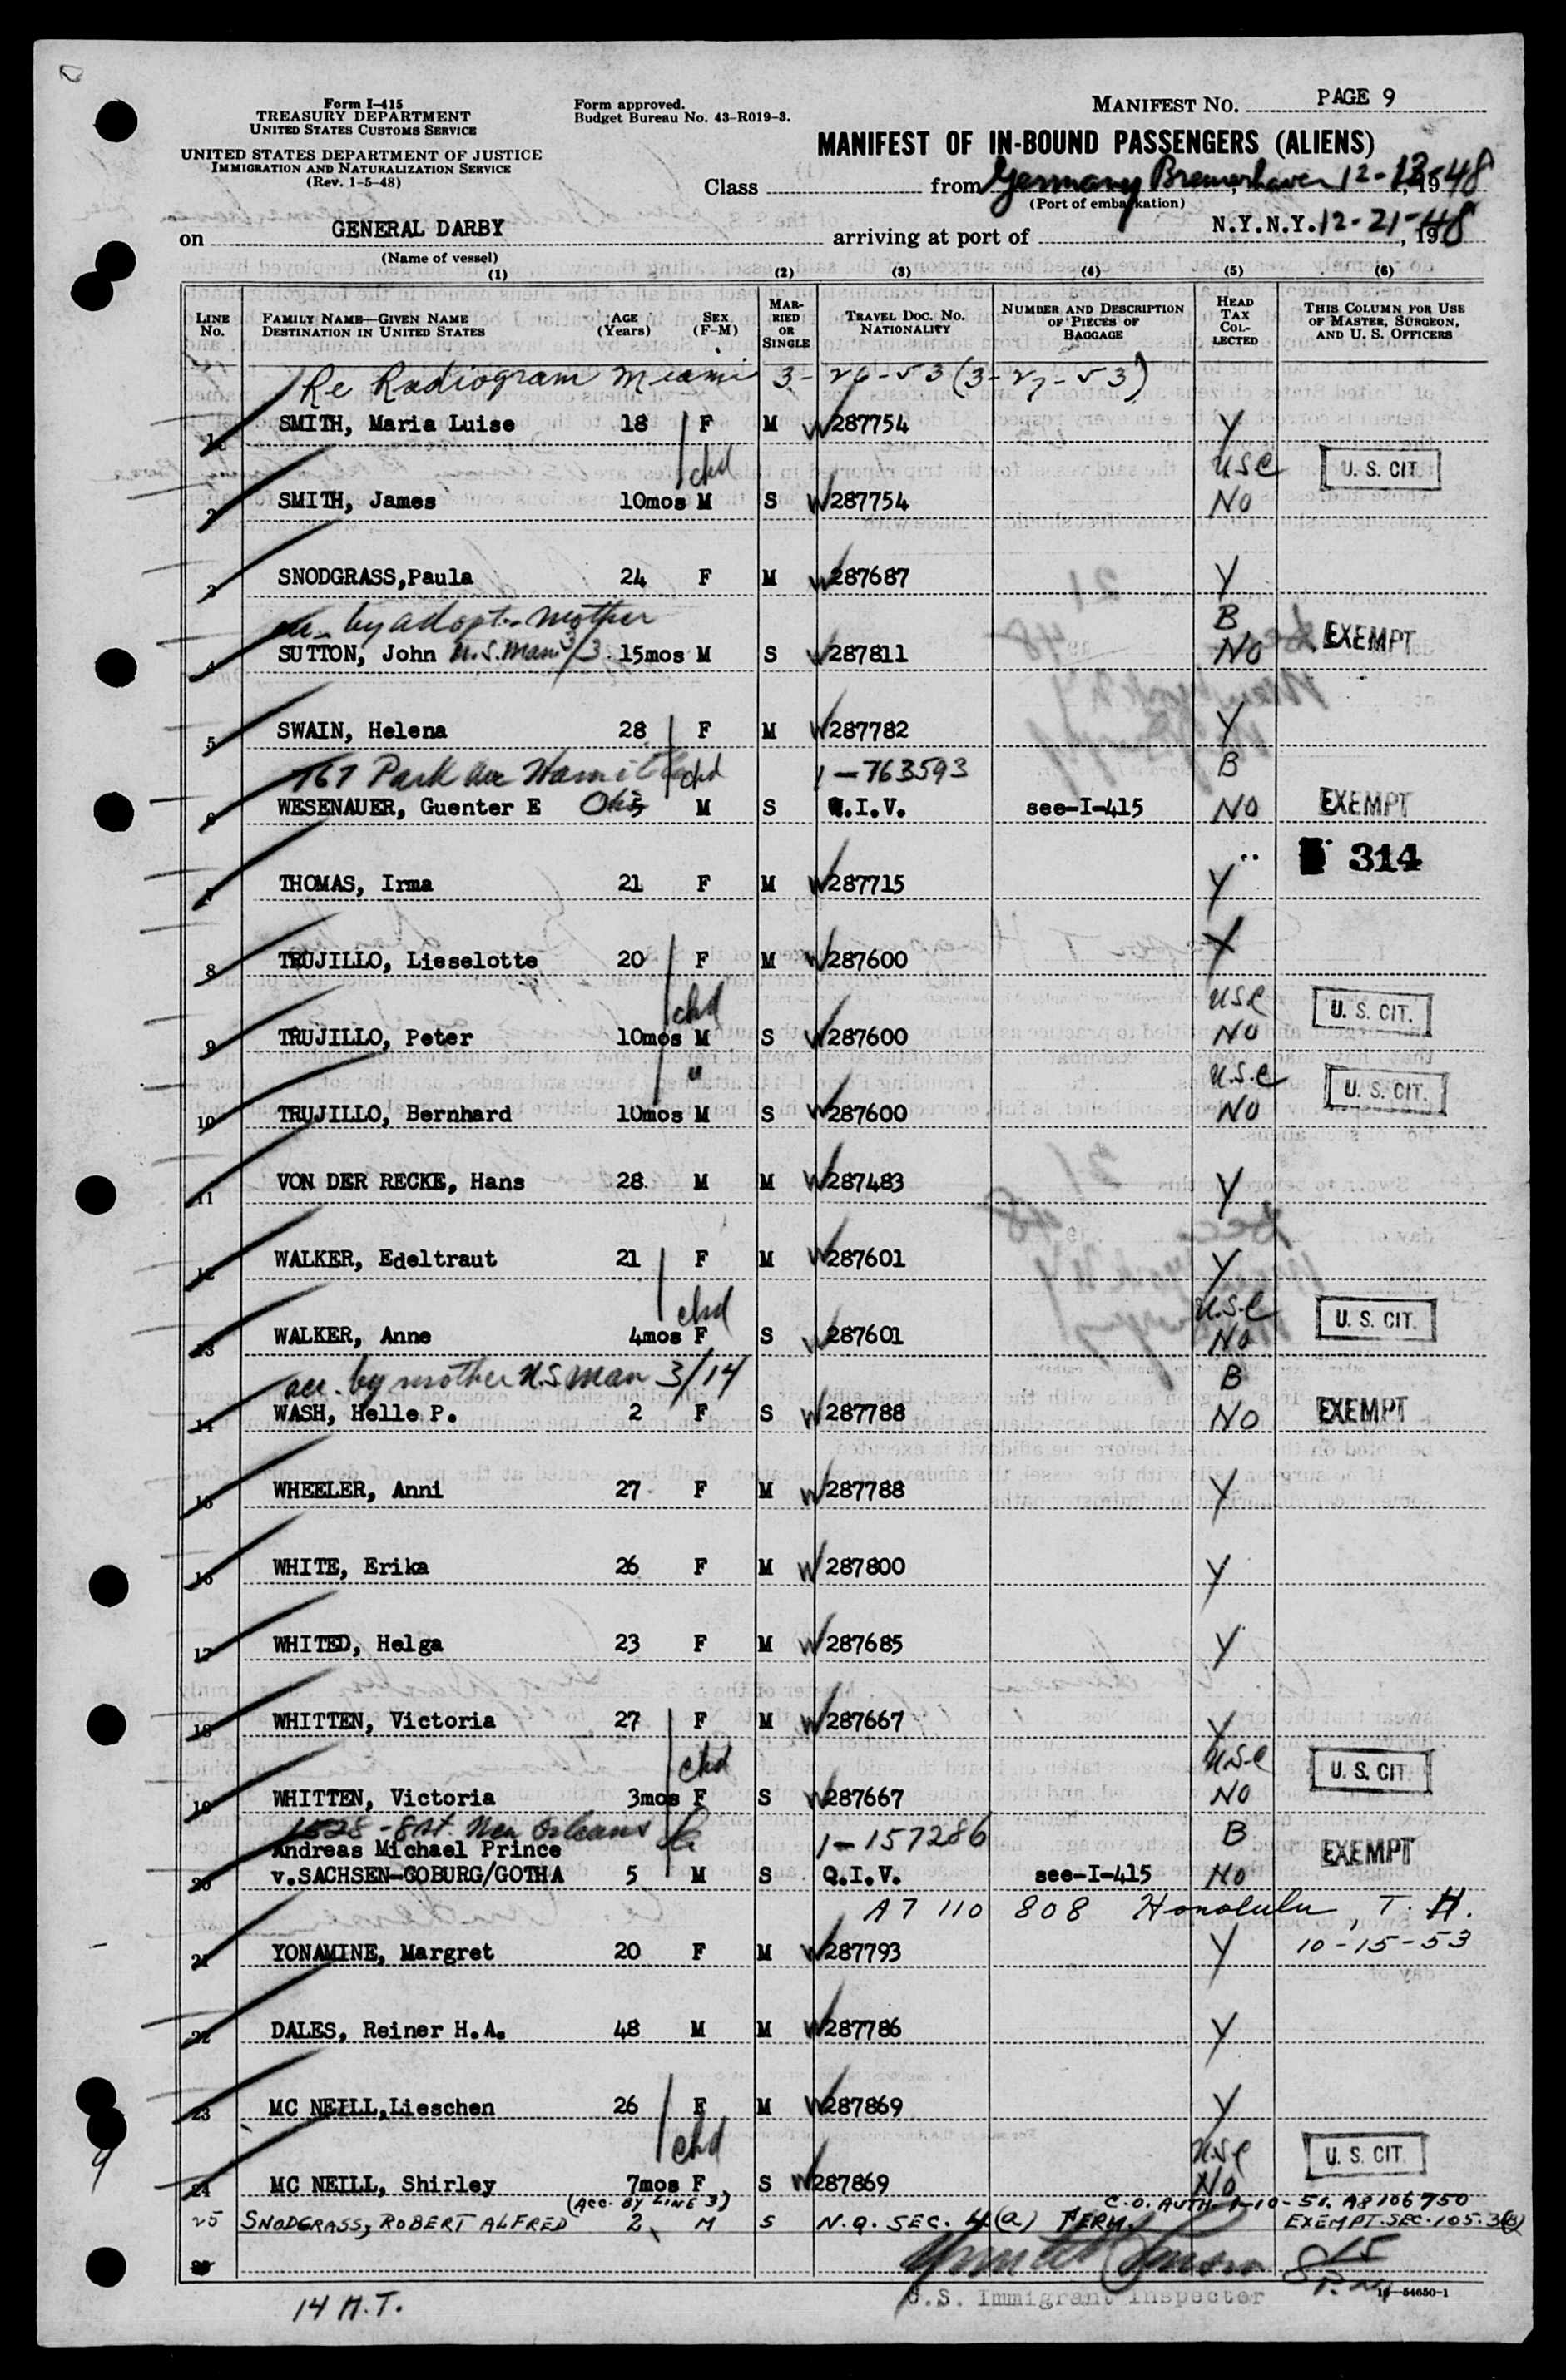 Form I-415
TREASURY DEPARTMENT
UNITED STATES CUSTOMS SERVICE
UNITED STATES DEPARTMENT OF JUSTICE
IMMIGRATION AND NATURALIZATION SERVICE
(Rev. 1-5-48)
Form approved.
Budget Bureau No. 43-R019-3.
MANIFEST NO. PAGE 9
MANIFEST OF IN-BOUND PASSENGERS (ALIENS)
Class from Germany Bremerhaven 12-13-, 1948
(Port of embarkation)
on GENERAL DARBY arriving at port of N.Y.N.Y. 12-21-, 1948
(Name of vessel)
(1) (2) (3) (4) (5) (6)
LINE No. FAMILY NAME—GIVEN NAME DESTINATION IN UNITED STATES AGE (Years) SEX (F-M) MARRIED OR SINGLE TRAVEL DOC. NO. NATIONALITY NUMBER AND DESCRIPTION OF PIECES OF BAGGAGE HEAD TAX COLLECTED THIS COLUMN FOR USE OF MASTER, SURGEON, AND U. S. OFFICERS
Re Radiogram Miami 3-26-53 (3-27-53)
1 SMITH, Maria Luise 18 F M 287754 Y
chd USC U. S. CIT.
2 SMITH, James 10mos M S 287754 NO
3 SNODGRASS,Paula 24 F M 287687 Y
acc. by adopt. mother B EXEMPT
4 SUTTON, John U.S. Man 3/3 15mos M S 287811 NO
5 SWAIN, Helena 28 F M 287782 Y
767 Park Ave Hamilton chd 1-763593 B
6 WESENAUER, Guenter E Ohio 5 M S Q.I.V. see-I-415 NO EXEMPT
314
7 THOMAS, Irma 21 F M 287715 Y
8 TRUJILLO, Lieselotte 20 F M 287600 Y
chd USC U. S. CIT.
9 TRUJILLO, Peter 10mos M S 287600 NO
" U.S.C U. S. CIT.
10 TRUJILLO, Bernhard 10mos M S 287600 NO
11 VON DER RECKE, Hans 28 M M 287483 Y
12 WALKER, Edeltraut 21 F M 287601 Y
chd U.S.C U. S. CIT.
13 WALKER, Anne 4mos F S 287601 NO
acc. by mother U.S. Man 3/14 B
14 WASH, Helle P. 2 F S 287788 NO EXEMPT
15 WHEELER, Anni 27 F M 287788 Y
16 WHITE, Erika 26 F M 287800 Y
17 WHITED, Helga 23 F M 287685 Y
18 WHITTEN, Victoria 27 F M 287667 Y
chd U.S.C U. S. CIT.
19 WHITTEN, Victoria 3mos F S 287667 NO
1528 - 8 St. New Orleans La 1-157286 B
Andreas Michael Prince EXEMPT
20 v.SACHSEN-COBURG/GOTHA 5 M S Q.I.V. see-I-415 NO
A7 110 808 Honolulu, T. H.
21 YONAMINE, Margret 20 F M 287793 Y 10-15-53
22 DALES, Reiner H.A. 48 M M 287786 Y
23 MC NEILL,Lieschen 26 F M 287869 Y
chd U.S.C U. S. CIT.
24 MC NEILL, Shirley 7mos F S 287869 NO
(ACC. BY LINE 3) C.O. AUTH. 1-10-51. A8106750
25 SNODGRASS, ROBERT ALFRED 2 M S N.Q. SEC. 4(a) PERM. EXEMPT. SEC. 105.3
9
14 H.T.
U.S. Immigrant Inspector
16—54650-1